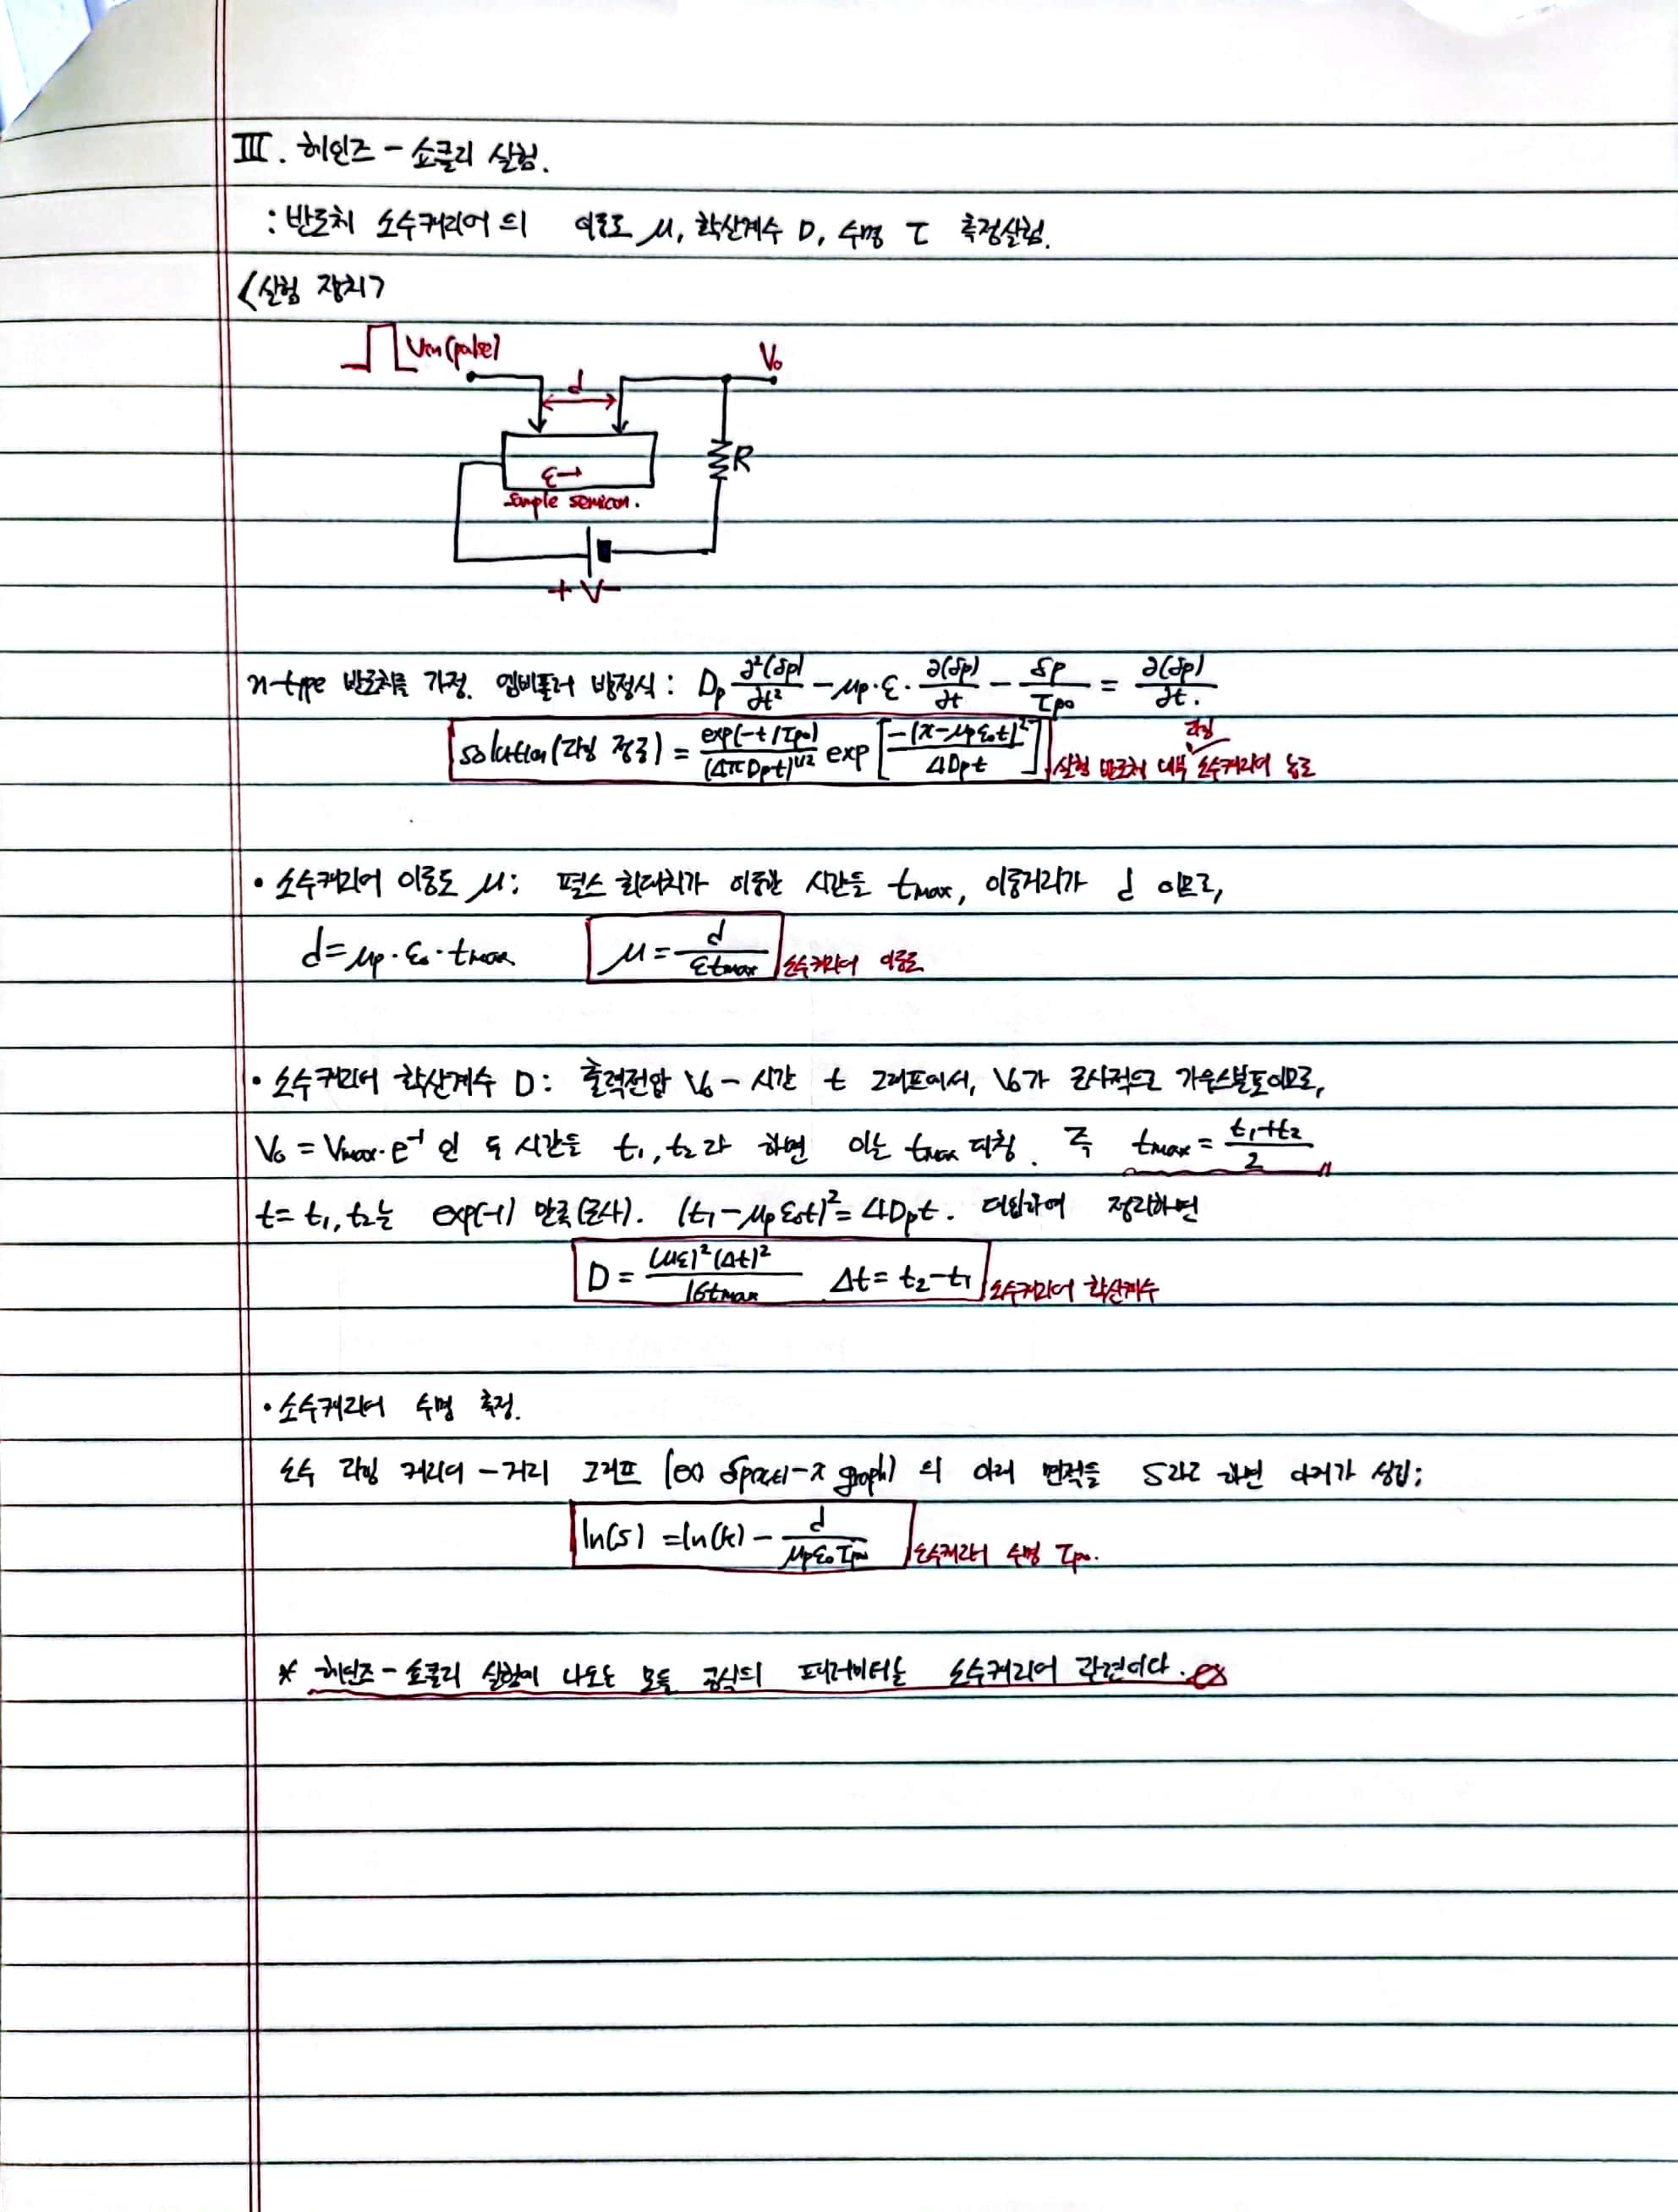 III. 헤인즈 - 쇼클리 실험.
: 반도체 소수캐리어의 이동도 μ, 확산계수 D, 수명 τ 측정실험.
<실험 장치>
Vin(pulse)
V₀
d
R
ε→
sample semicon.
+ V -
n-type 반도체를 가정. 엠비폴러 방정식 : Dp ∂²(δp)/∂t² - μp·ε·∂(δp)/∂t - δp/τpo = ∂(δp)/∂t.
solution(과잉 정공) = exp(-t/τpo)/(4πDpt)^1/2 exp[-(x-μpε₀t)²/4Dpt] 실험 반도체 내부 과잉 소수캐리어 농도
• 소수캐리어 이동도 μ : 펄스 최대치가 이동한 시간을 tmax, 이동거리가 d 이므로,
d = μp·ε₀·tmax μ = d/εtmax 소수캐리어 이동도
• 소수캐리어 확산계수 D : 출력전압 V₀ - 시간 t 그래프에서, V₀가 근사적으로 가우스분포이므로,
V₀ = Vmax·e⁻¹ 인 두 시간을 t₁, t₂라 하면 이는 tmax 대칭. 즉 tmax = (t₁+t₂)/2
t = t₁, t₂는 exp(-1) 만족(근사). (t₁-μpε₀t)² = 4Dpt. 대입하여 정리하면
D = (με)²(Δt)²/16tmax Δt = t₂-t₁ 소수캐리어 확산계수
• 소수캐리어 수명 측정.
소수 과잉 캐리어 - 거리 그래프 (ex) - x graph) 의 아래 면적을 S라고 하면 아래가 성립;
ln(S) = ln(k) - d/μpε₀τpo 소수캐리어 수명 τpo.
* 헤인즈 - 쇼클리 실험에 나오는 모든 공식의 파라미터는 소수캐리어 관련이다.